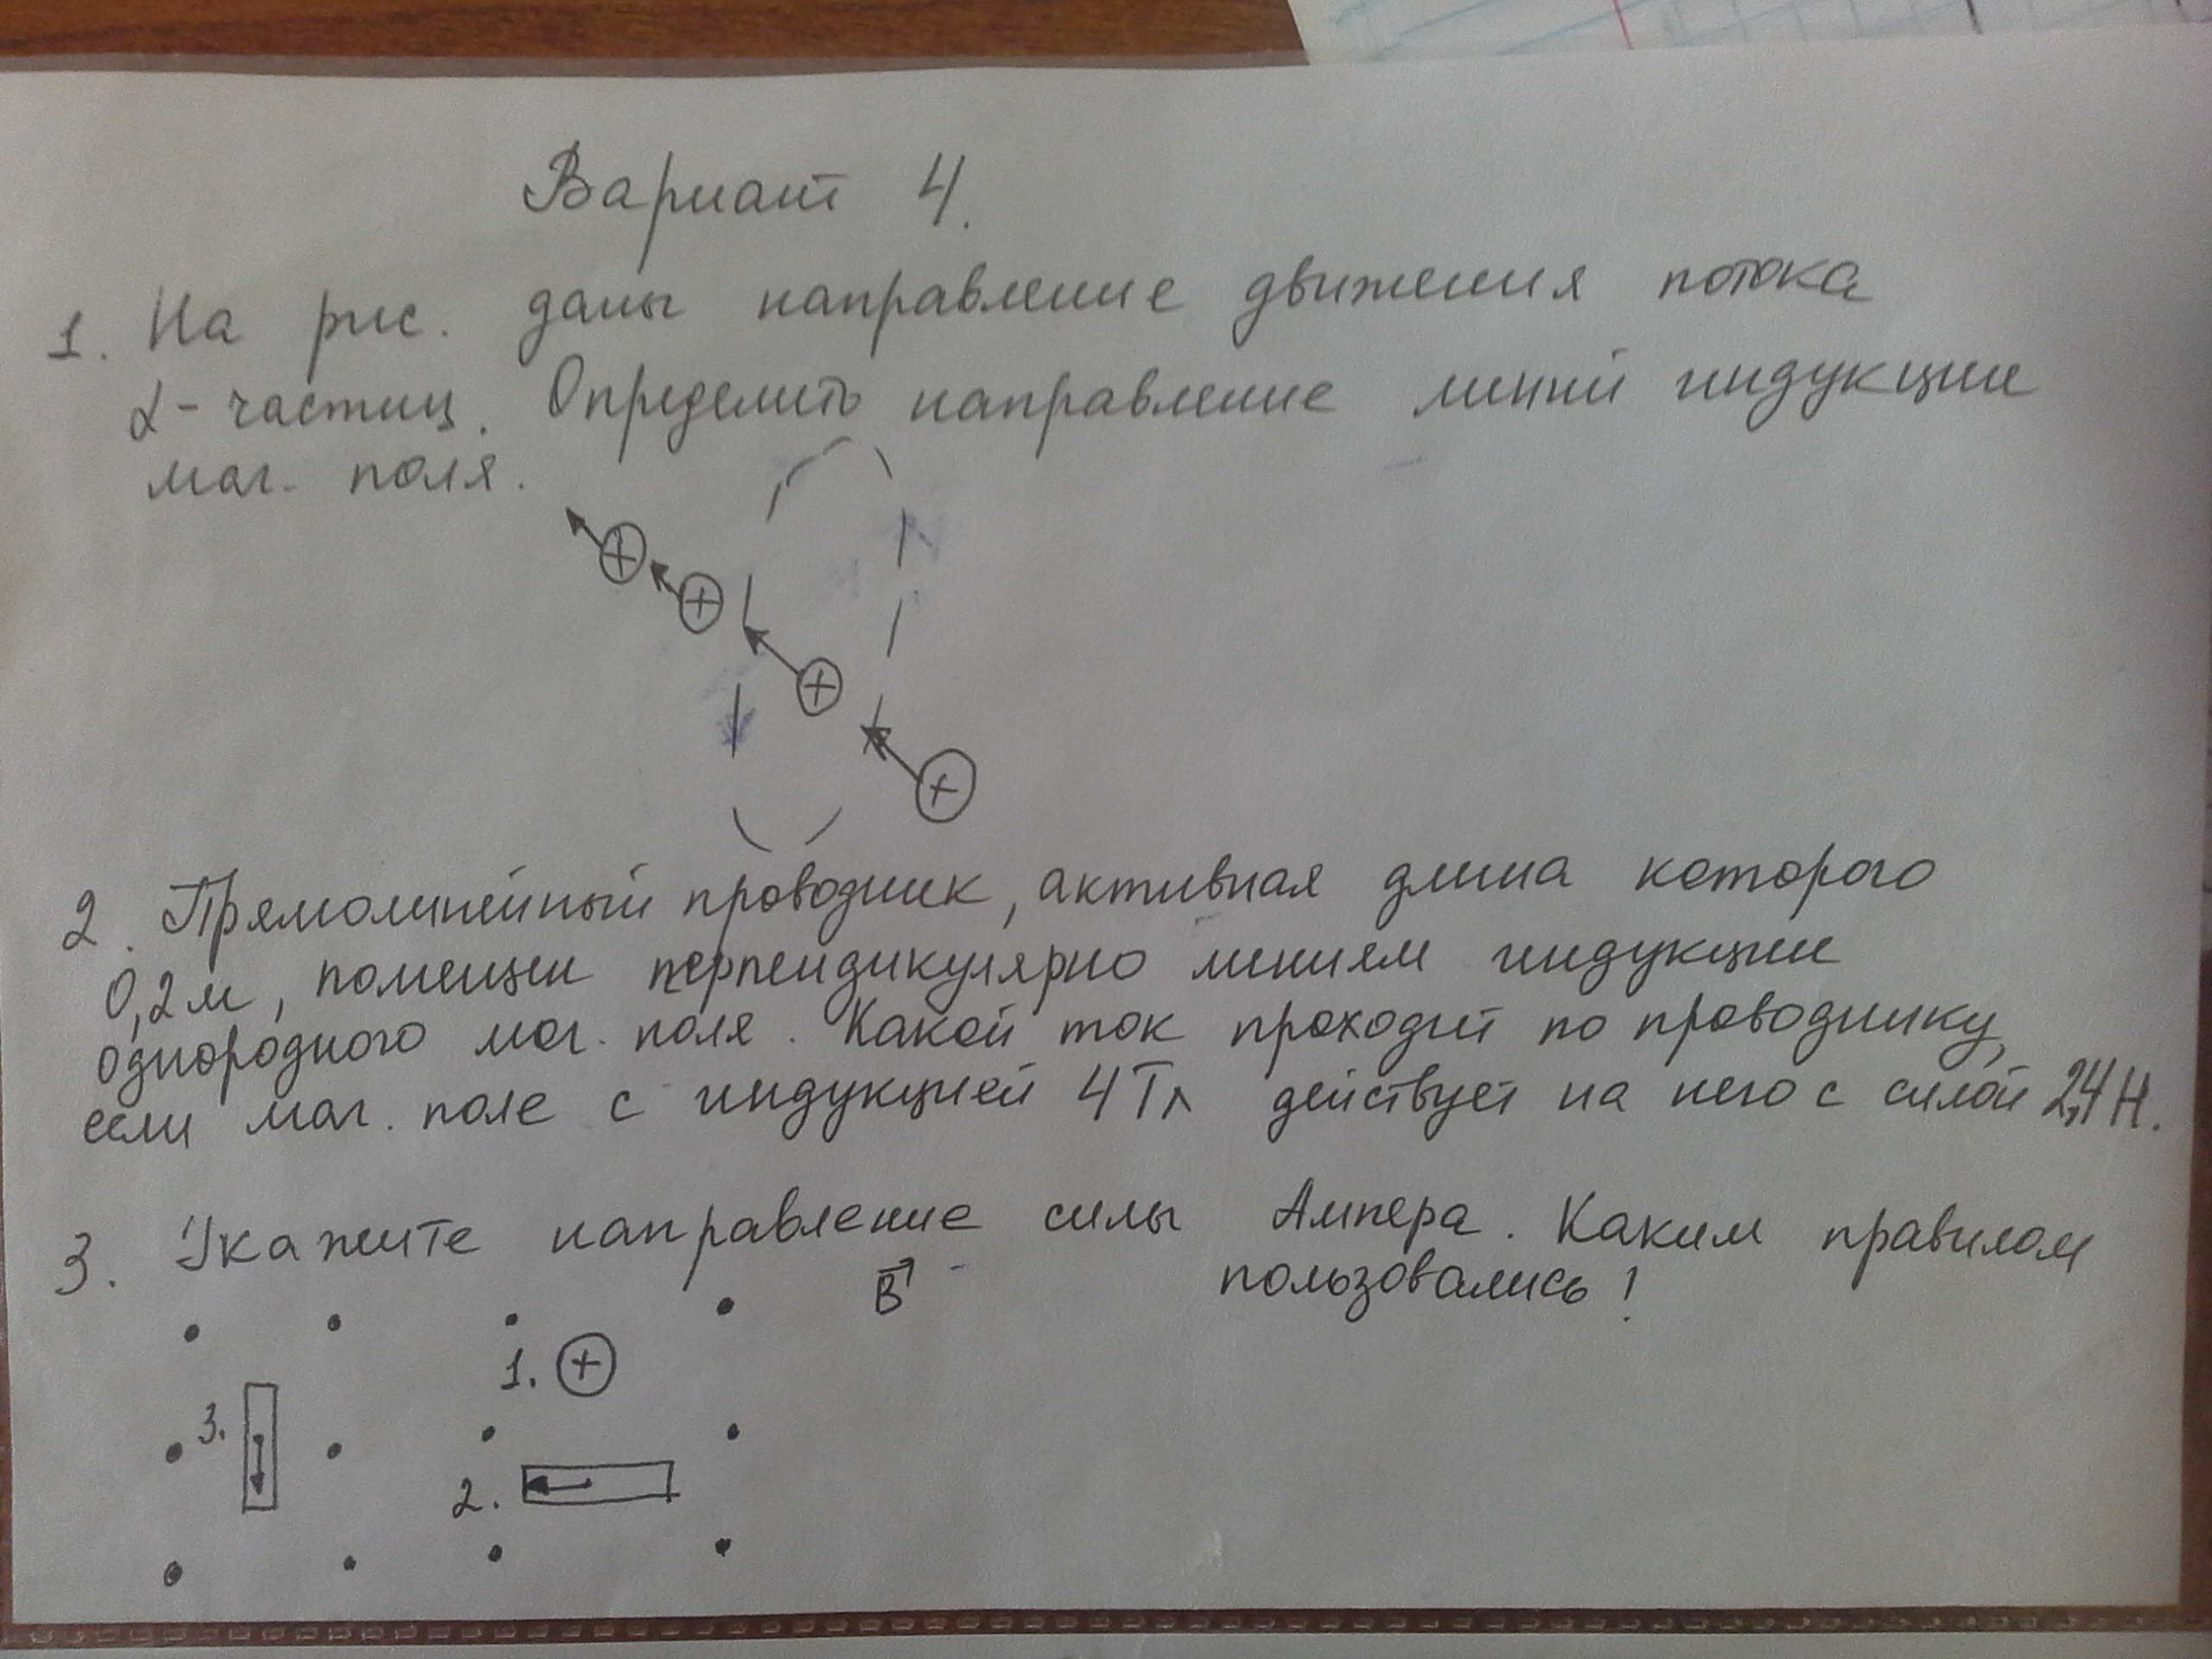 Вариант 4.
1. На рис. даны направление движения потока
α-частиц. Определить направление линий индукции
маг. поля.
2. Прямолинейный проводник, активная длина которого
0,2м, помещен перпендикулярно линиям индукции
однородного маг. поля. Какой ток проходит по проводнику,
если маг. поле с индукцией 4Тл действует на него с силой 2,4Н.
3. Укажите направление силы Ампера. Каким правилом
пользовались!
B
1. +
3.
2.